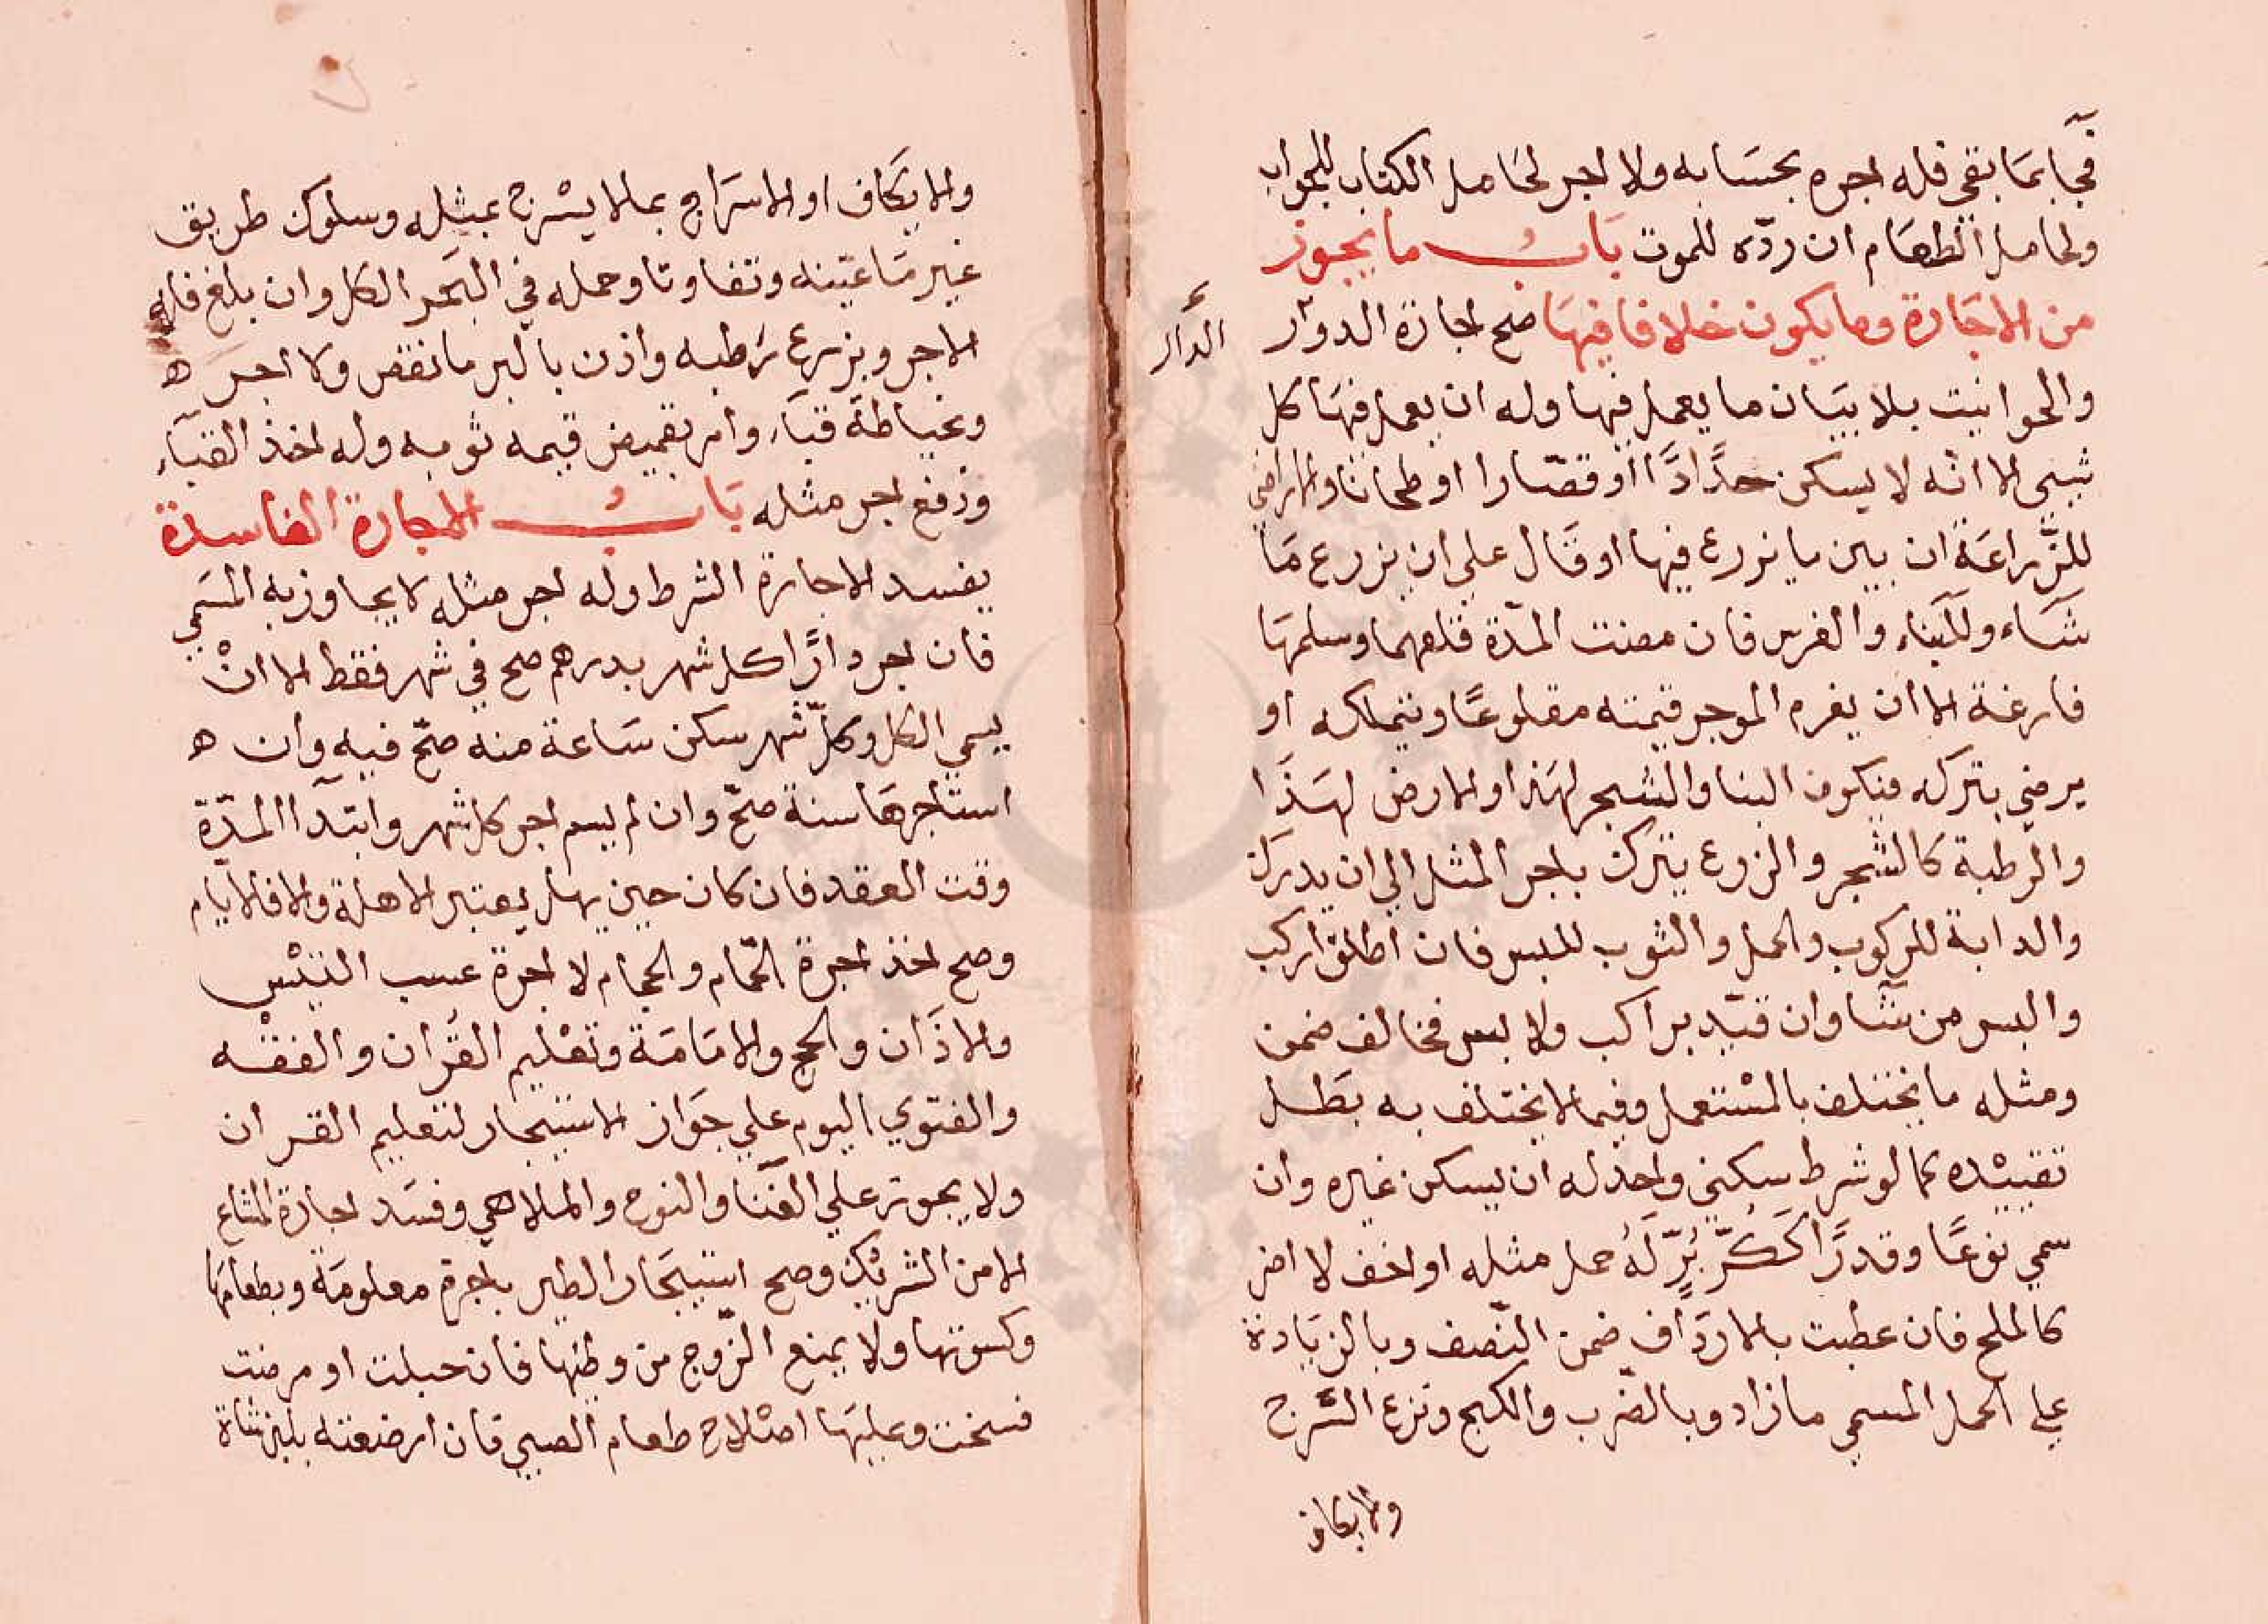 فجآ بما بقى فله اجره بحسابه ولا اجر لحامل الكتاب للجواب
ولحامل الطعام ان ردّه للموت باب ما يجوز
من الاجارة وما يكون خلافا فيها صح اجارة الدوار
الدار
والحوانيت بلا بيان ما يعمل فيها وله ان يعمل فيها كل
شيى الا انه لا يسكن حدّادًا او قصّارا او طحانا والاراضي
للزّراعة ان بين ما يزرع فيها او قال على ان يزرع مَا
شَاء وللبناء والغرس فان مضت المدّة قلعهما وسلمهَا
فارغة الا ان يغرم الموجر قيمته مقلوعًا ويتملكه او
يرضي بتركه فيكون البنا والشجر لهذا والارض لهَذَا
والرطبة كالشجر والزرع يترك باجر المثل الي ان يدرك
والدابة للركوب والحمل والثوب للبس فان اطلق اركب
والبس من شآ وان قيّد براكب ولابس فخالف ضمن
ومثله ما يختلف بالمسْتعمل وفيما لا يختلف به بَطل
تقييْده كما لو شرط سكني واحد له ان يسكن غيره وان
سمي نوعًا وقدرًا كَكُرّ بُرٍّ لَهُ حمل مثله او اخف لا اضر
كالملح فان عطبت بالاردَاف ضمن النّصف وبالزيَادة
علي الحمل المسمي ما زاد وبالضّرب والكبح ونزع السَّرج
والايكاف
والايكَاف او الاسرَاج بما لا يسْرج بمثله وسلوك طريق
غير مَا عيّنه وتفاوتا وحمله في البَحر الكل وان بلغ فله
الاجر وبزرع رَطبه واذن بالبر ما نقص ولا اجرَ ه
وبخياطة قبَاء وامر بقميص قيمه ثوبه وله اخذ القبَاء
ودفع اجر مثله بَابُ الاجارة الفاسدة
يفسد الاجارة الشرط وله اجر مثله لا يجاوز به المسَمي
فان اجر دارًا كل شهر بدرهم صح في شهر فقط الا انْ
يسمي الكل وكلّ شهر سكن سَاعة منه صحّ فيه وان ه
استاجرهَا سنة صحّ وان لم يسم اجر كل شهر وابتدآ المدّة
وقت العقد فان كان حين يهل يعتبر الاهلة والا فالايام
وصح اخذ اجرة الحّمام والحجام لا اجرة عسب التيْس
والاذَان والحج والامَامَة وتعْليم القُران والفقْه
والفتوي اليوم علي جوَاز الاستيجار لتعليم القران
ولا يجوز علي الغنَا والنوح والملاهي وفسَد اجارة المشاع
الا من الشريْك وصح استيجَار الظير باجرة معلومَة وبطعامهَا
وكسوتها ولا يمنع الزّوج من وطئها فان حبلت او مرضت
فسخت وعليهَا اصْلاح طعام الصبي فان ارضعته بلبن شاة